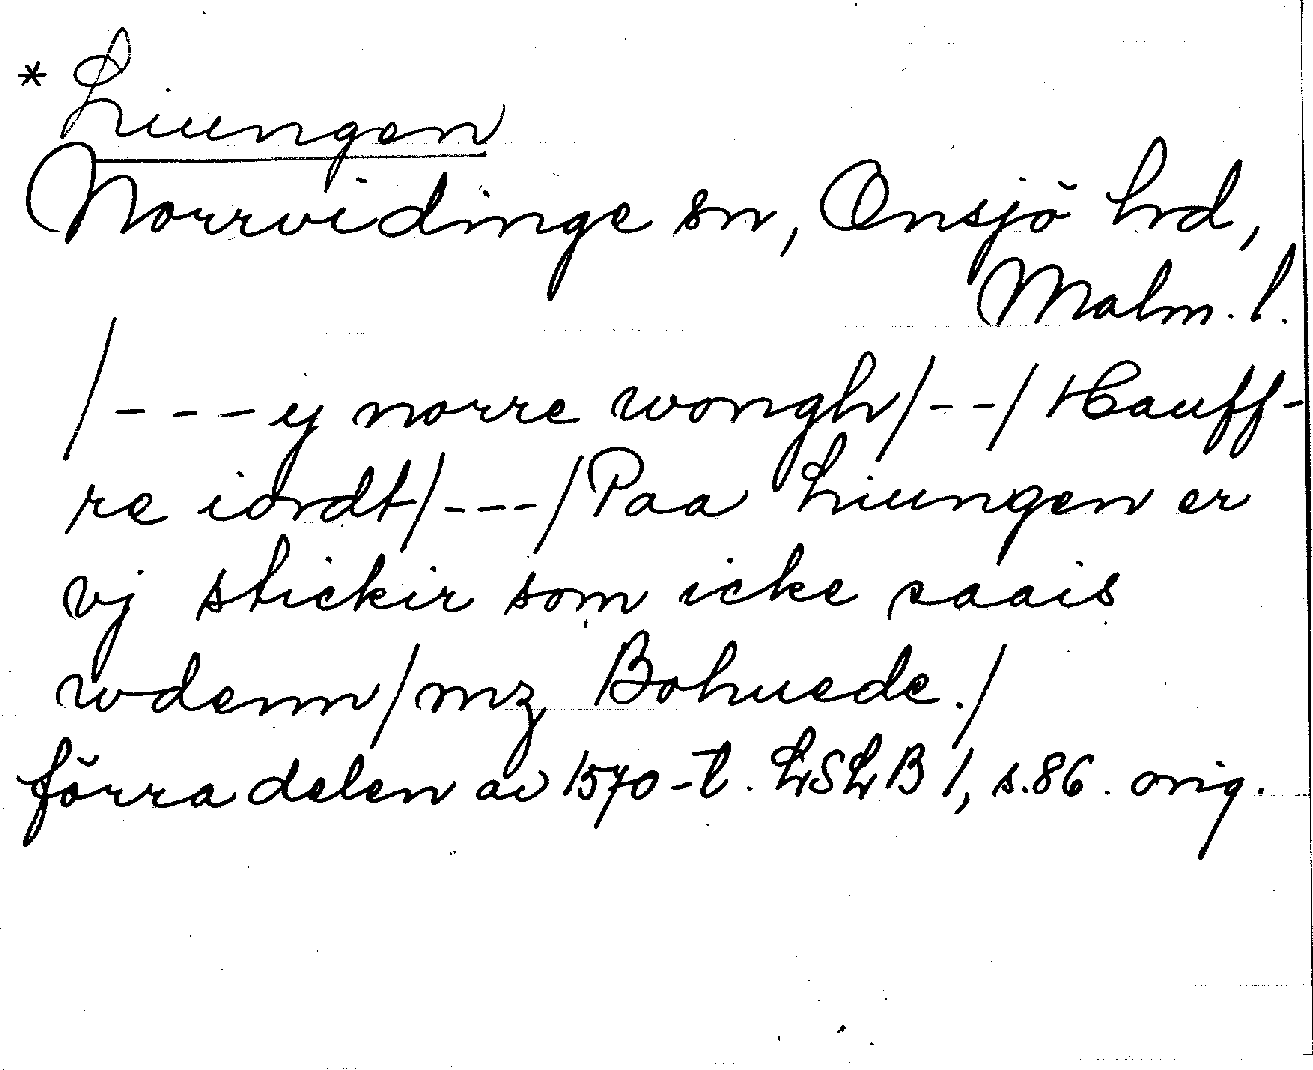 * Liungen
Norrvidinge sn, Onsjö hrd,
Malm. l.
/---y norre wongh/--/ Hauff-
re iordt/---/ Paa Liungen er
vj stickir som icke saais
wdenn/mz Bohuede./
förra delen av 1570-t. LSLB 1, s.86. orig.